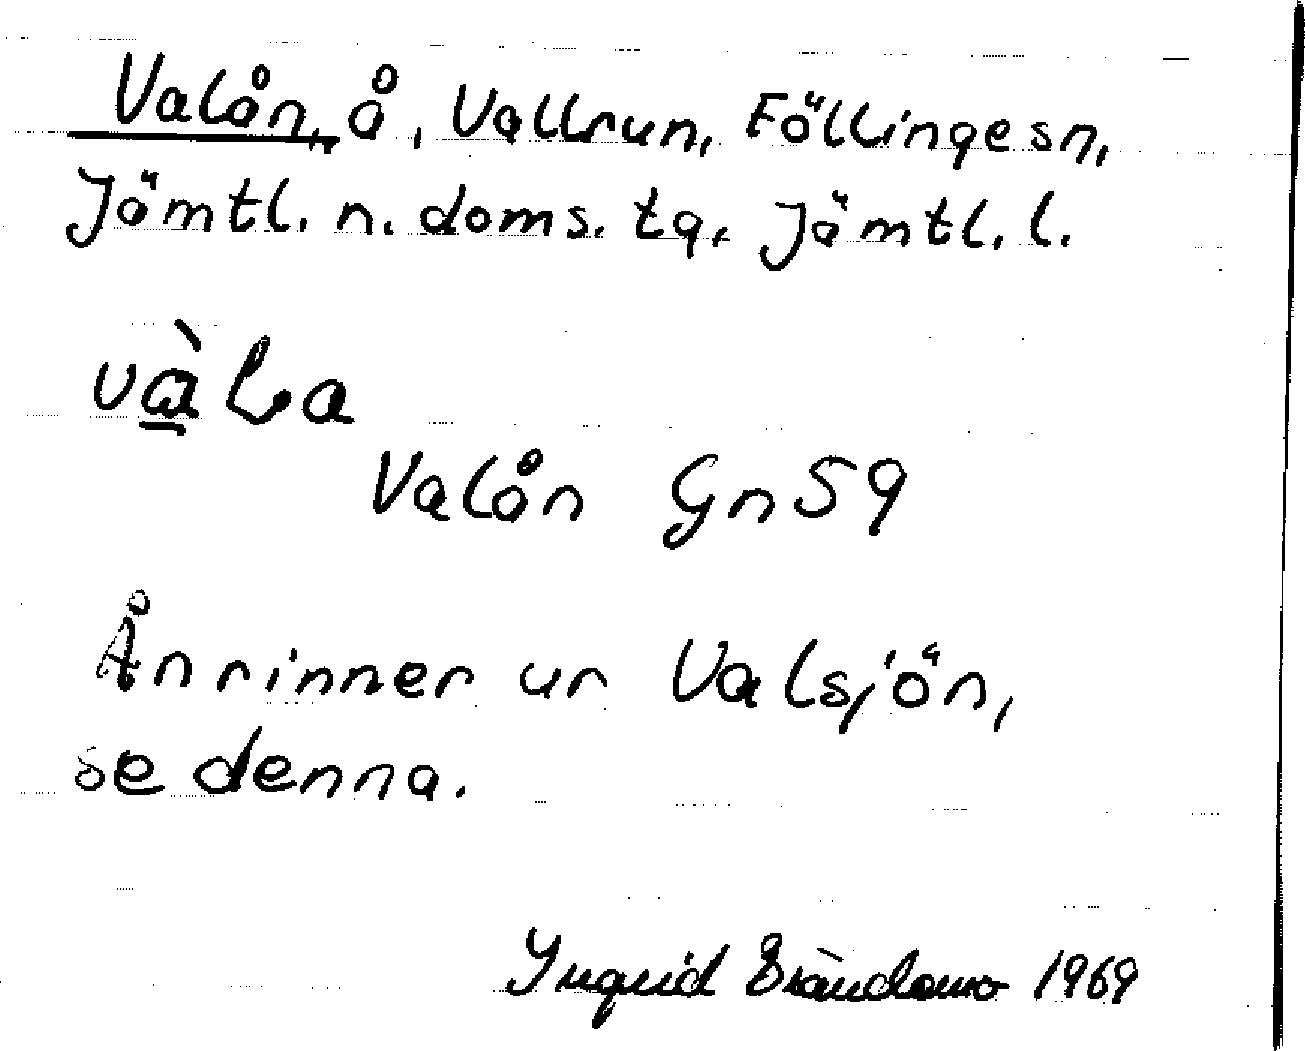 Valån, å, Vallrun, Föllinge sn,
Jämtl. n. doms. tg, Jämtl. l.
Valån Gn59
Ån rinner ur Valsjön,
se denna.
Ingrid 1969